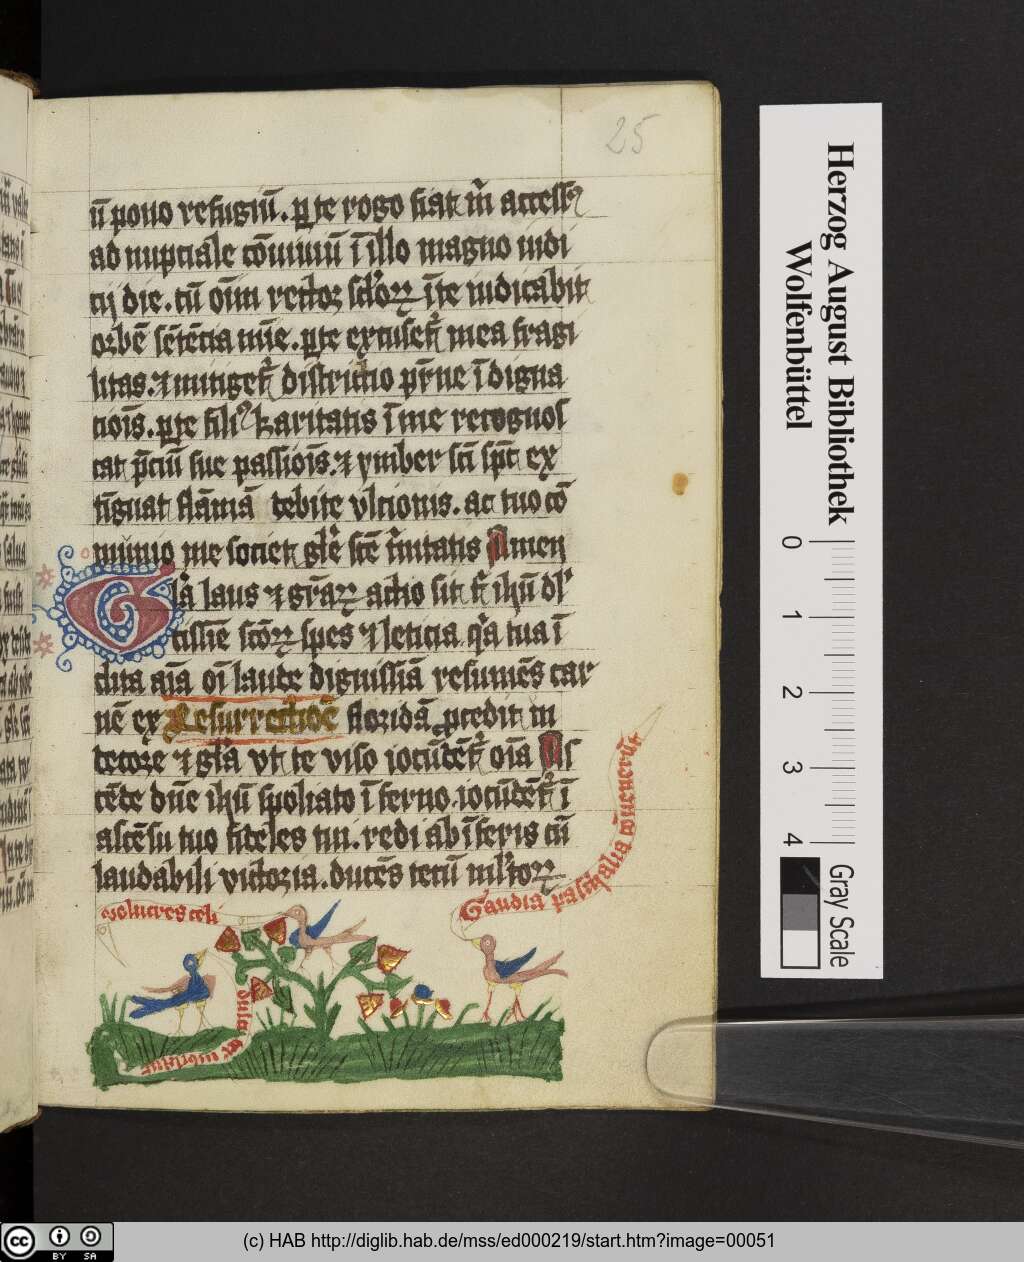 25
ū pono refugiū. ꝑ te rogo fiat m̄ accessꝰ
ad nupciale cōuiuiū ī illo magno iudi
cij die. cū oīm rector sclorꝝ ī te iudicabit
orbē sētēcia tue. ꝑ te excuset᷑ mea fragi
litas. ⁊ mitiget᷑ districtio ꝑ̄ne īdigna
cioīs. ꝑ te filiꝰ karitatis ī me recognos
cat p̄ciū sue passioīs. ⁊ ymber sc̄i sp̄c ex
tīguat flāmā debite vlcionis. ac tuo cō
minio me societ gl̄e sc̄e t᷑nitatis Amen
Gl̄a laus ⁊ gr̄aꝝ actio sit t᷑ ihū dl᷑
cissīe sc̄orꝝ spes ⁊ leticia q᷑a tua ī
clita aīa oī laude dignissīa resumēs car
nē ex Resurrectiōe floridā ꝓcedit in
decore ⁊ gl̄a vt te viso iocūdēt᷑ oīa As
cēde dn̄e ihū spoliato īferno. iocūdēt᷑ ī
ascēsu tuo fideles tui. redi ab īferis cū
laudabili victoria. ducēs tecū mil᷑torꝝ
volucres celi
Gaudia paschalia
dulc
Herzog August Bibliothek
Wolfenbüttel
0 1 2 3 4
Gray Scale
cc BY SA
(c) HAB http://diglib.hab.de/mss/ed000219/start.htm?image=00051